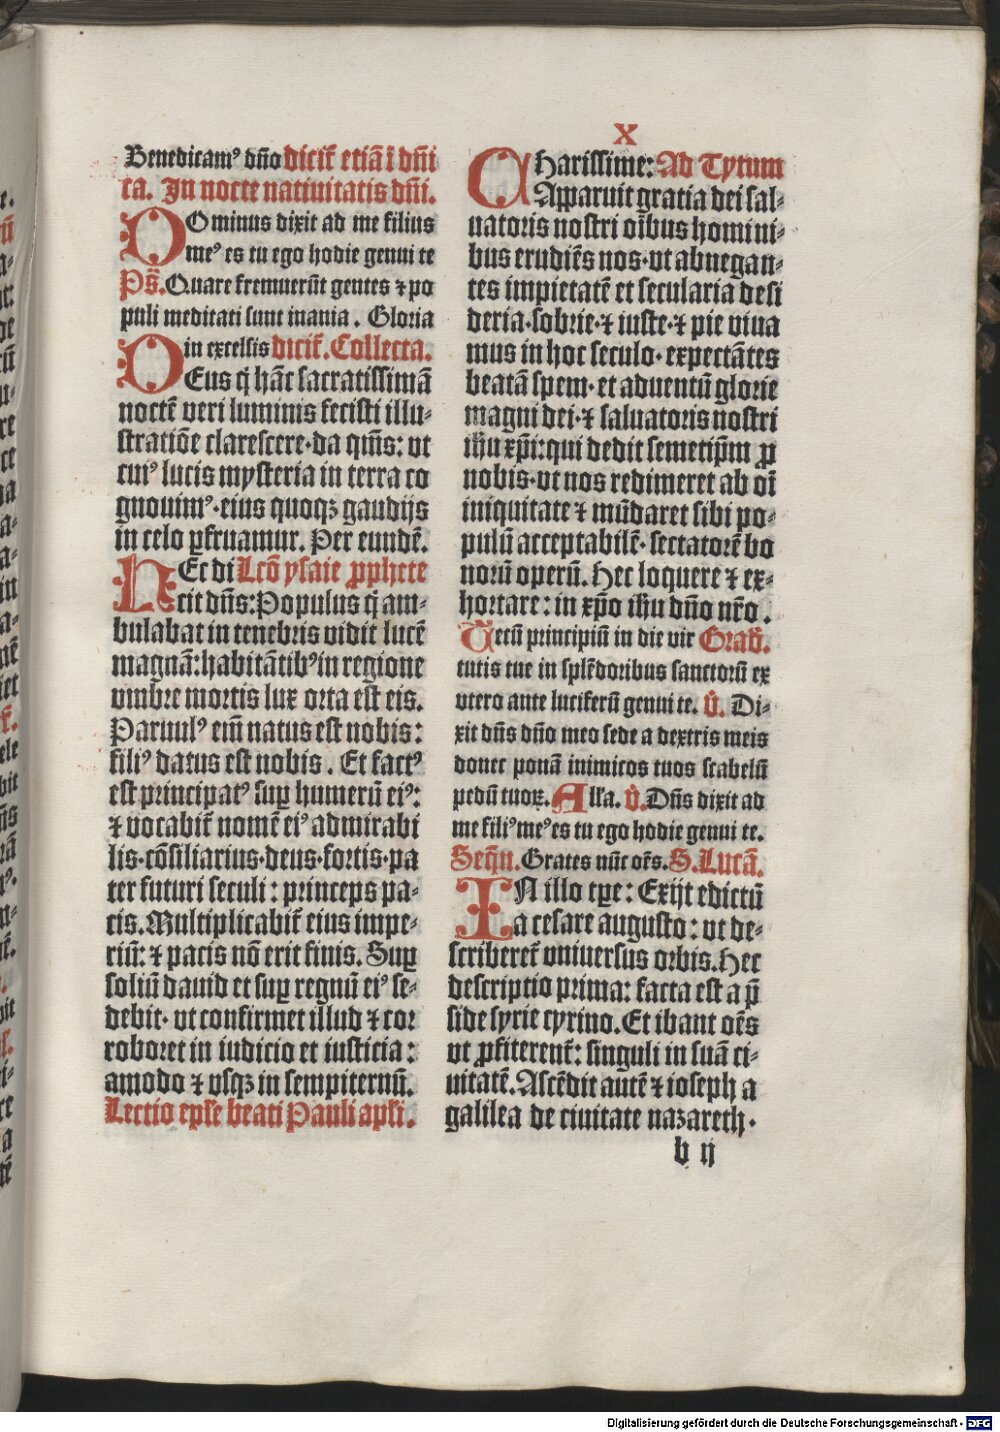 X
Benedicamꝰ dño dicit᷑ etiā ī dñi
ca. In nocte natiuitatis dñi.
DOminus dixit ad me filius
meꝰ es tu ego hodie genui te
Ps̄. Quare fremuerūt gentes ⁊ po
puli meditati sunt inania. Gloria
in excelsis dicit᷑. Collecta.
DEus q̄ hāc sacratissimā
noctē veri luminis fecisti illu⸗
stratiōe clarescere·da qm̄s: vt
cuiꝰ lucis mysteria in terra co
gnouimꝰ·eius quoqꝫ gaudijs
in celo ꝑfruamur. Per eundē.
HEc di Lcō ysaie ꝓphete
cit dñs: Populus q̄ am⸗
bulabat in tenebris vidit lucē
magnā: habitātibꝰ in regione
vmbre mortis lux orta est eis.
Paruulꝰ eīm natus est nobis:
filiꝰ datus est nobis. Et factꝰ
est principatꝰ suꝑ humerū eiꝰ:
⁊ vocabit᷑ nomē eiꝰ admirabi
lis·cōsiliarius·deus·fortis·pa
ter futuri seculi: princeps pa⸗
cis. Multiplicabit᷑ eius impe⸗
riū: ⁊ pacis nō erit finis. Suꝑ
soliū dauid et suꝑ regnū eiꝰ se⸗
debit·vt confirmet illud ⁊ cor
roboret in iudicio et iusticia:
amodo ⁊ vsqꝫ in sempiternū.
Lectio ep̄le beati Pauli apl̄i.
CHarissime: Ad Tytum
Apparuit gratia dei sal⸗
uatoris nostri oībus homini⸗
bus erudiēs nos·vt abnegan⸗
tes impietatē et secularia desi
deria·sobrie·⁊ iuste·⁊ pie viua
mus in hoc seculo·expectātes
beatā spem·et aduentū glorie
magni dei·⁊ saluatoris nostri
ih̄u xp̄i: qui dedit semetip̄m ꝓ
nobis·vt nos redimeret ab oī
iniquitate ⁊ mūdaret sibi po⸗
pulū acceptabilē·sectatorē bo
norū operū. Hec loquere ⁊ ex⸗
hortare: in xp̄o ih̄u dño nr̄o.
Tecū principiū in die vir Grad᷑.
tutis tue in splēdoribus sanctorū ex
vtero ante luciferū genui te. V̊. Di⸗
xit dñs dño meo sede a dextris meis
donec ponā inimicos tuos scabelū
pedū tuoꝝ. Alla. V̊. Dñs dixit ad
me filiꝰ meꝰ es tu ego hodie genui te.
Seqn̄. Grates nūc oēs. S. Lucā.
IN illo tꝑe: Exijt edictū
a cesare augusto: vt de⸗
scriberet᷑ vniuersus orbis. Hec
descriptio prima: facta est a p̄
side syrie cyrino. Et ibant oēs
vt ꝓfiterent᷑: singuli in suā ci⸗
uitatē. Ascēdit autē ⁊ ioseph a
galilea de ciuitate nazareth·
b ij
Digitalisierung gefördert durch die Deutsche Forschungsgemeinschaft - DFG